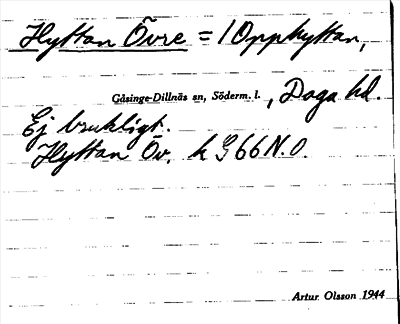 Hyttan Övre = 1 Opphyttan,
Gåsinge-Dillnäs sn, Söderm. l., Daga hd.
Ej brukligt.
Hyttan Öv. k G 66 N.O.
Artur Olsson 1944